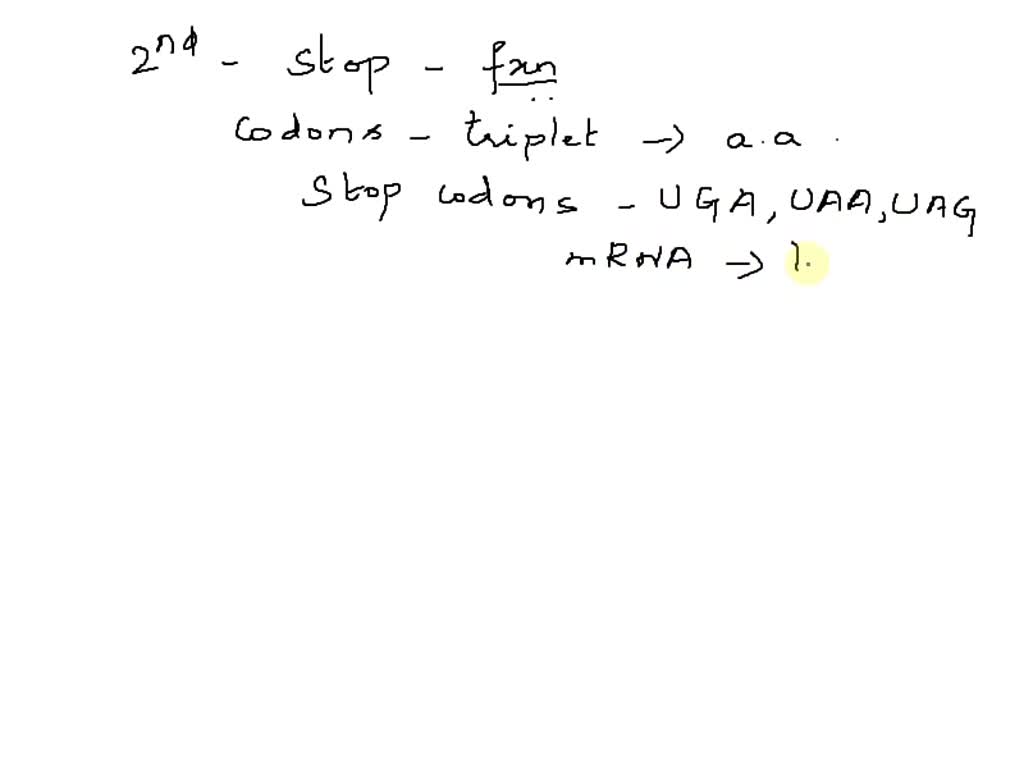 2nd - Stop - fxn
Codons - triplet → a.a.
Stop codons - UGA, UAA, UAG
mRNA →